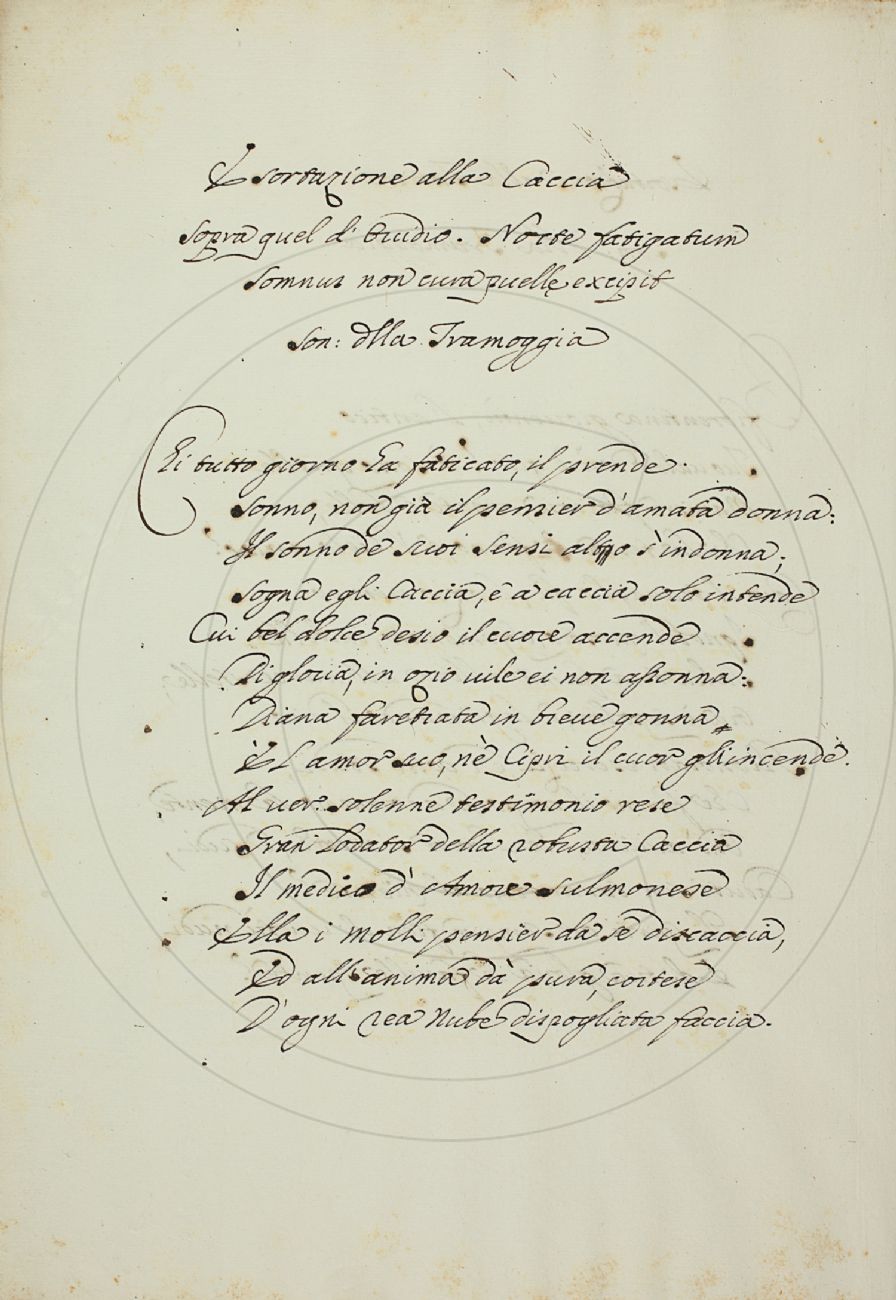 Esortazione alla Caccia
sopra quel d' Ovidio. Nocte fatigatum
somnus non cura puellę excipit
Son: dlla Tramoggia
Ei tutto giorno ha faticato, il prende
sonno, non già il pensier d'amata donna:
Il sonno de suoi sensi alto s'indonna;
sogna egli Caccia, e a caccia solo intende
Cui bel dolce desio il cuore accende
Di gloria, in ozio vile ei non assonna:
Diana faretrata in breve gonna
È l'amor suo, nè Cipri il cuor gli incende.
Al ver solenne testimonio rese
Gran Lodator della robusta Caccia
Il medico d' Amore Sulmonese
Ella i molli pensier da sè discaccia,
Ed all'anima dà pura, cortese
D'ogni rea Nube dispogliata faccia.